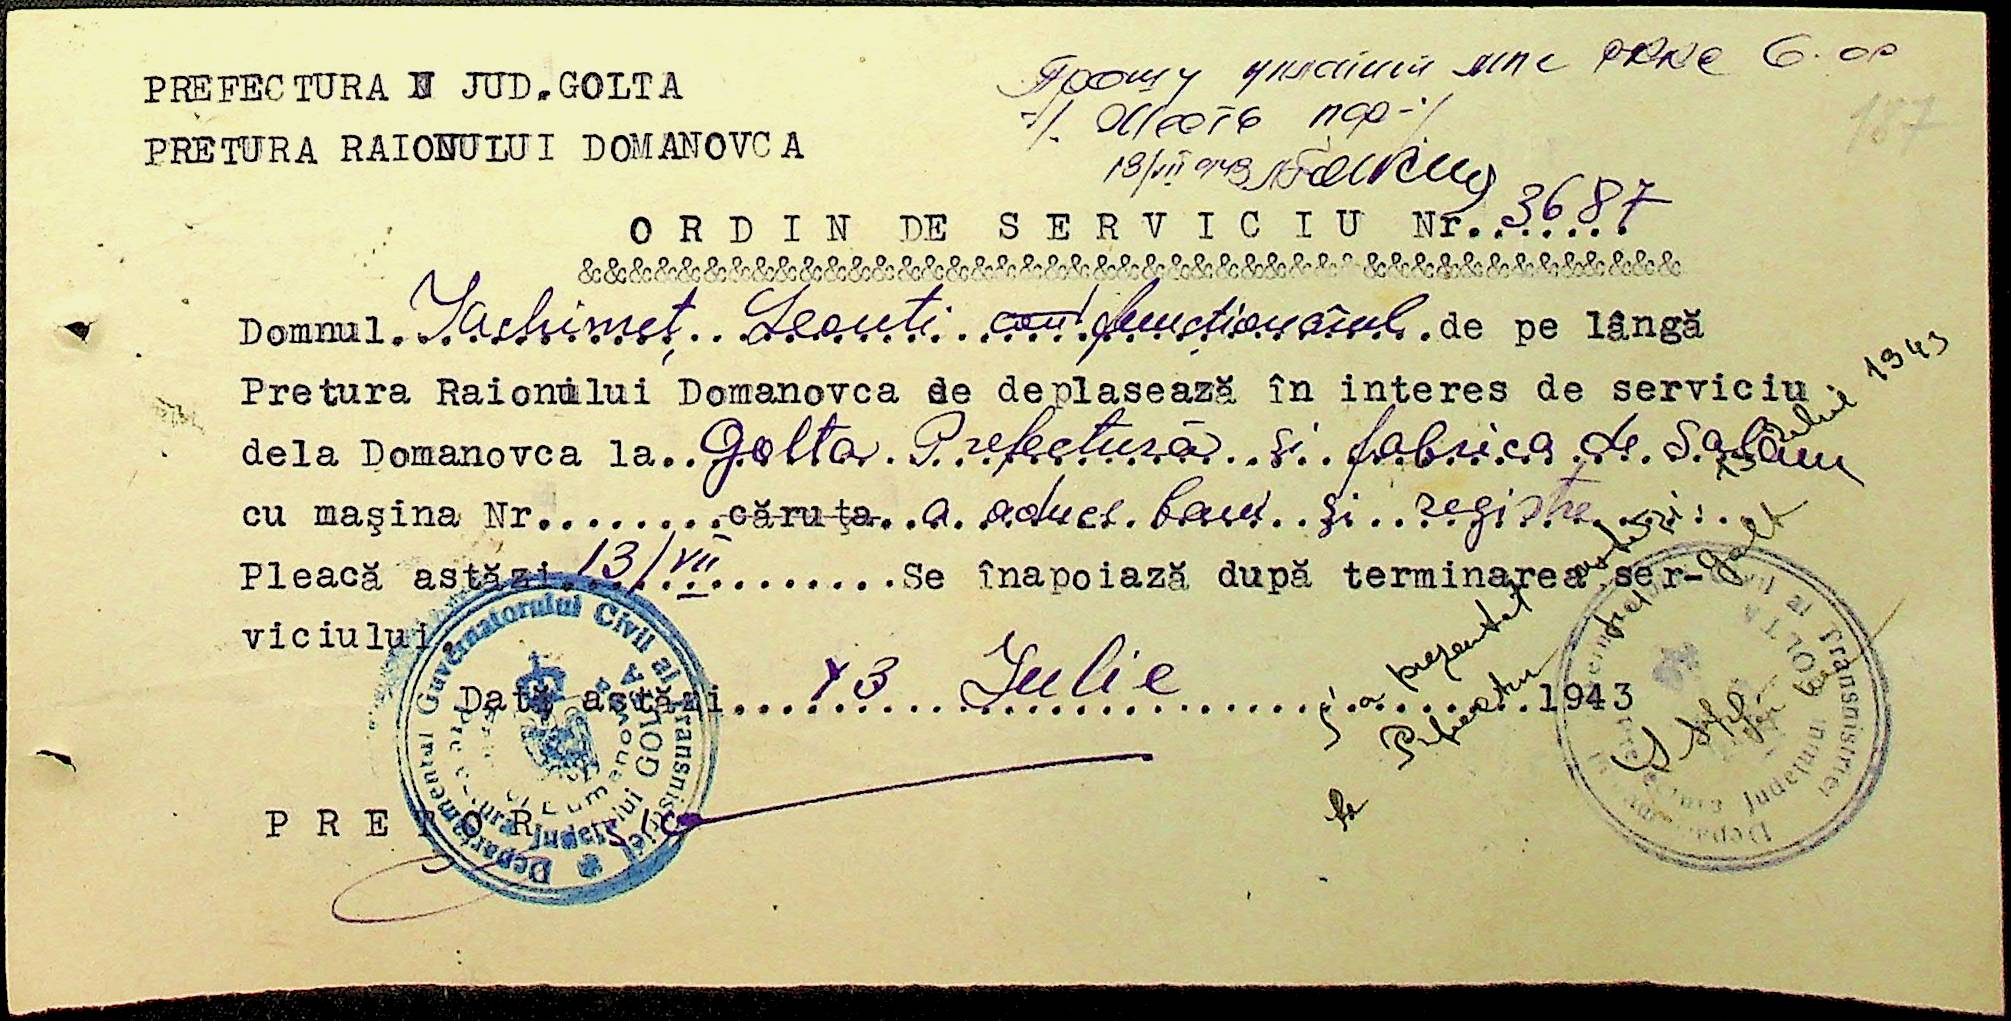 PREFECTURA JUD.GOLTA
PRETURA RAIONULUI DOMANOVCA
Прошу 6.00
18/VII 943
187
ORDIN DE SERVICIU Nr. 3687
&&&&&&&&&&&&&&&&&&&&&&&&&&&&&&&&&&&&&&&&&&&&&
Domnul. Iachimeț Leonti funcționarul de pe lângă
Pretura Raionului Domanovca se deplasează în interes de serviciu
dela Domanovca la.. Golta Prefectură și fabrica de Salam
cu mașina Nr........căruța.. a aduce bani și registre
Pleacă astăzi 13/VII ........Se înapoiază după terminarea ser-
viciului
Dată astăzi... 13 Iulie ...1943
PRETOR
S'a prezentat astăzi 15 Iulie 1943
la Prefectura Jud. Golta
Departamentul Guvernatorului Civil al Transnistriei
Județului GOLTA
Guvernatorului Civil al Transnistriei
Prefectura Județului GOLTA